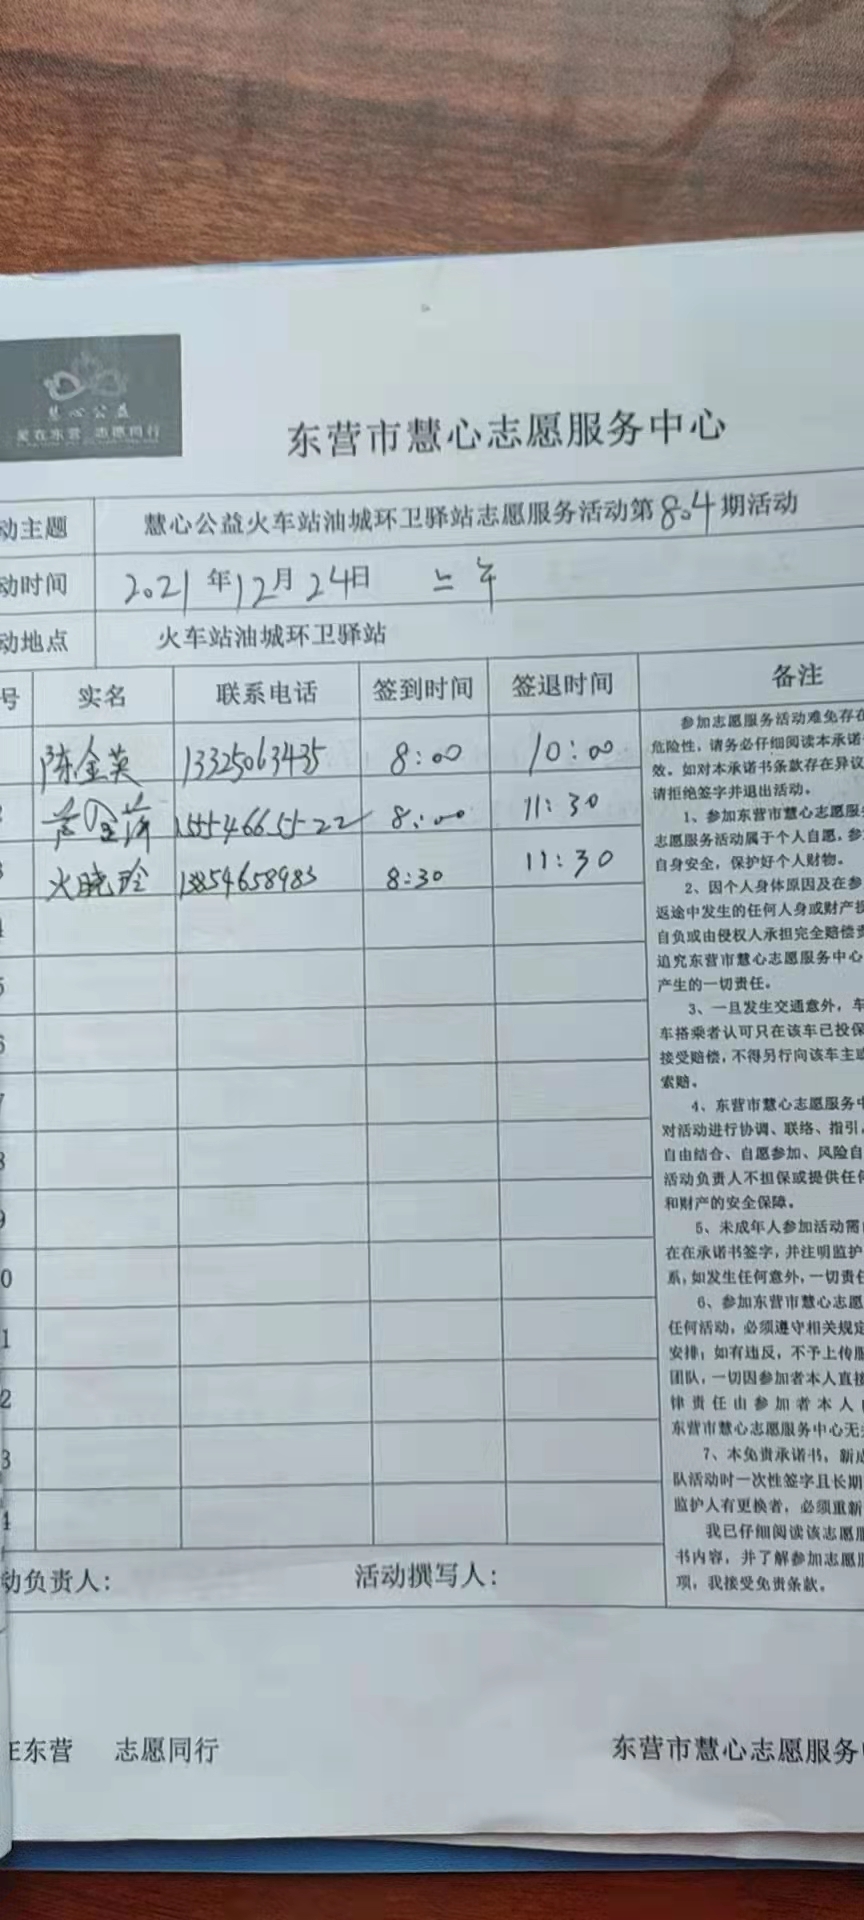 慧心公益
爱在东营 志愿同行
东营市慧心志愿服务中心
动主题 慧心公益火车站油城环卫驿站志愿服务活动第804期活动
动时间 2021年12月24日 上午
动地点 火车站油城环卫驿站
号 实名 联系电话 签到时间 签退时间 备注
陈金英 13325063435 8:00 10:00
2 15554665522 8:00 11:30
3 火晓玲 13854658983 8:30 11:30
4
5
6
7
8
9
0
1
2
3
4
参加志愿服务活动难免存在
危险性，请务必仔细阅读本承诺
效。如对本承诺书条款存在异议
请拒绝签字并退出活动。
1、参加东营市慧心志愿服
志愿服务活动属于个人自愿，参
自身安全，保护好个人财物。
2、因个人身体原因及在参
返途中发生的任何人身或财产损
自负或由侵权人承担完全赔偿责
追究东营市慧心志愿服务中心
产生的一切责任。
3、一旦发生交通意外，车
车搭乘者认可只在该车已投保
接受赔偿，不得另行向该车主或
索赔。
4、东营市慧心志愿服务中
对活动进行协调、联络、指引，
自由结合、自愿参加、风险自
活动负责人不担保或提供任何
和财产的安全保障。
5、未成年人参加活动需
在在承诺书签字，并注明监护
系，如发生任何意外，一切责任
6、参加东营市慧心志愿
任何活动，必须遵守相关规定
安排；如有违反，不予上传服
团队，一切因参加者本人直接
律责任由参加者本人
东营市慧心志愿服务中心无
7、本免责承诺书，新成
队活动时一次性签字且长期
监护人有更换者，必须重新
我已仔细阅读该志愿服
书内容，并了解参加志愿服
项，我接受免责条款。
动负责人： 活动撰写人：
在东营 志愿同行 东营市慧心志愿服务中